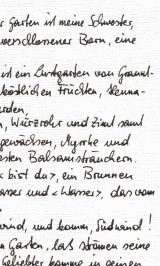 r Garten ist meine Schwester,
verschlossener Born, eine
ist ein Lustgarten von Granat-
köstlichen Früchten, Henna-
rden,
n, Würzrohr und Zimt samt
gewächsen, Myrrhe und
esten Balsamsträuchern.
bist du>, ein Brunnen
asser und <Wasser>, das vom
wind, und komm, Südwind!
n Garten, lass strömen seine
Geliebter komme in seinen